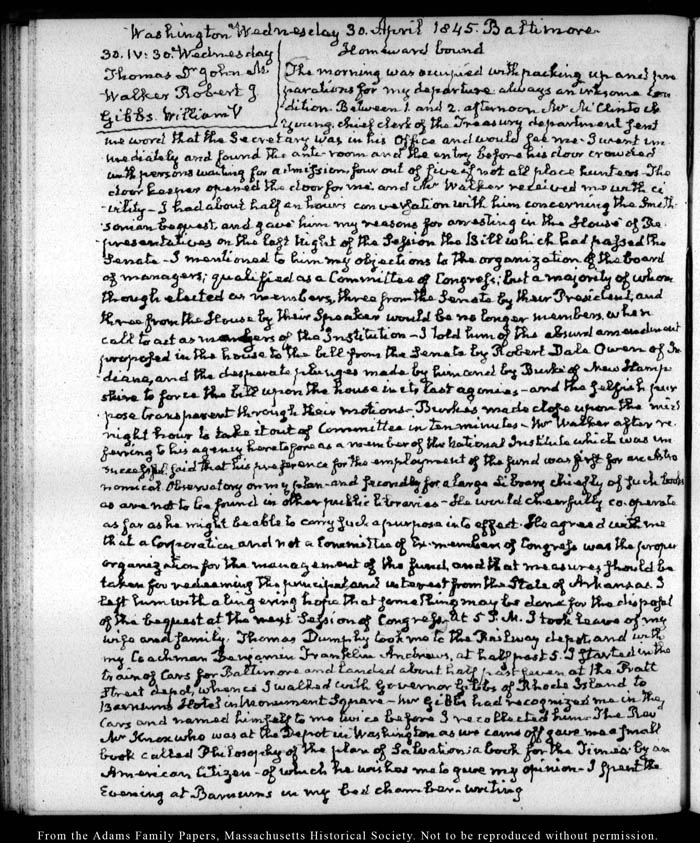 Washington Wednesday 30. April 1845. Baltimore
30. IV: 30. Wednesday
Homeward bound
Thomas Dr John M.
Walker Robert J
Gibbs. William V
The morning was occupied with packing up and pre
parations for my departure always an irksome con
dition. Between 1. and 2. afternoon Mr McClintock
Young, chief clerk of the Treasury department sent
me word that the Secretary was in his Office and would see me. I went im
mediately and found the anti-room and the entry before his door crowded
with persons waiting for admission, four out of five if not all place hunters. The
door keeper opened the door for me and Mr Walker received me with ci
vility - I had about half an hours conversation with him concerning the Smith
sonian bequest, and gave him my reasons for arresting in the House of Re
presentatives on the last Night of the Session the Bill which had passed the
Senate - I mentioned to him my objections to the organization of the board
of managers; qualified as a Committee of Congress; but a majority of whom
though elected as members, three from the Senate by their President, and
three from the House by their Speaker would be no longer members, when
call to act as members of the Institution - I told him of the absurd amendment
proposed in the house to the bill from the Senate by Robert Dale Owen of In
diana, and the desperate plunges made by him and by Burke of New Hamp
shire to force the bill upon the house in its last agonies - and the selfish pur
pose transparent through their motions - Burke's made close upon the mid
night hour to take it out of Committee in ten minutes - Mr Walker after re
ferring to his agency heretofore as a member of the National Institute which was un
successful, said that his preference for the employment of the fund was first for an Astro
nomical Observatory on my plan - and secondly for a large Library chiefly of such books
as are not to be found in other public libraries - He would cheerfully co-operate
as far as he might be able to carry such a purpose into effect. He agreed with me
that a Corporation and not a Committee of Ex-members of Congress was the proper
organization for the management of the fund, and that measures should be
taken for redeeming the principal and interest from the State of Arkansas. I
left him with a lingering hope that something may be done for the disposal
of the bequest at the next Session of Congress. At 5 P.M. I took leave of my
wife and family. Thomas Dumphy took me to the Railway depot, and with
my Coachman Benjamin Franklin Andrews, at half past 5. I started in the
train of Cars for Baltimore and landed about half past seven at the Pratt
Street depot, whence I walked with Governor Gibbs of Rhode Island to
Barnums Hotel in Monument Square - Mr Gibbs had recognized me in the
Cars and named himself to me twice before I recollected him. The Revd
Mr Knox who was at the Depot in Washington as we came off gave me a small
book called Philosophy of the plan of Salvation; a book for the Times by an
American Citizen - of which he wishes me to give my opinion - I spent the
Evening at Barnums in my bed chamber - writing
From the Adams Family Papers, Massachusetts Historical Society. Not to be reproduced without permission.